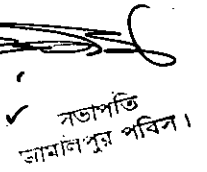 সভাপতি
জামালপুর পবিস।